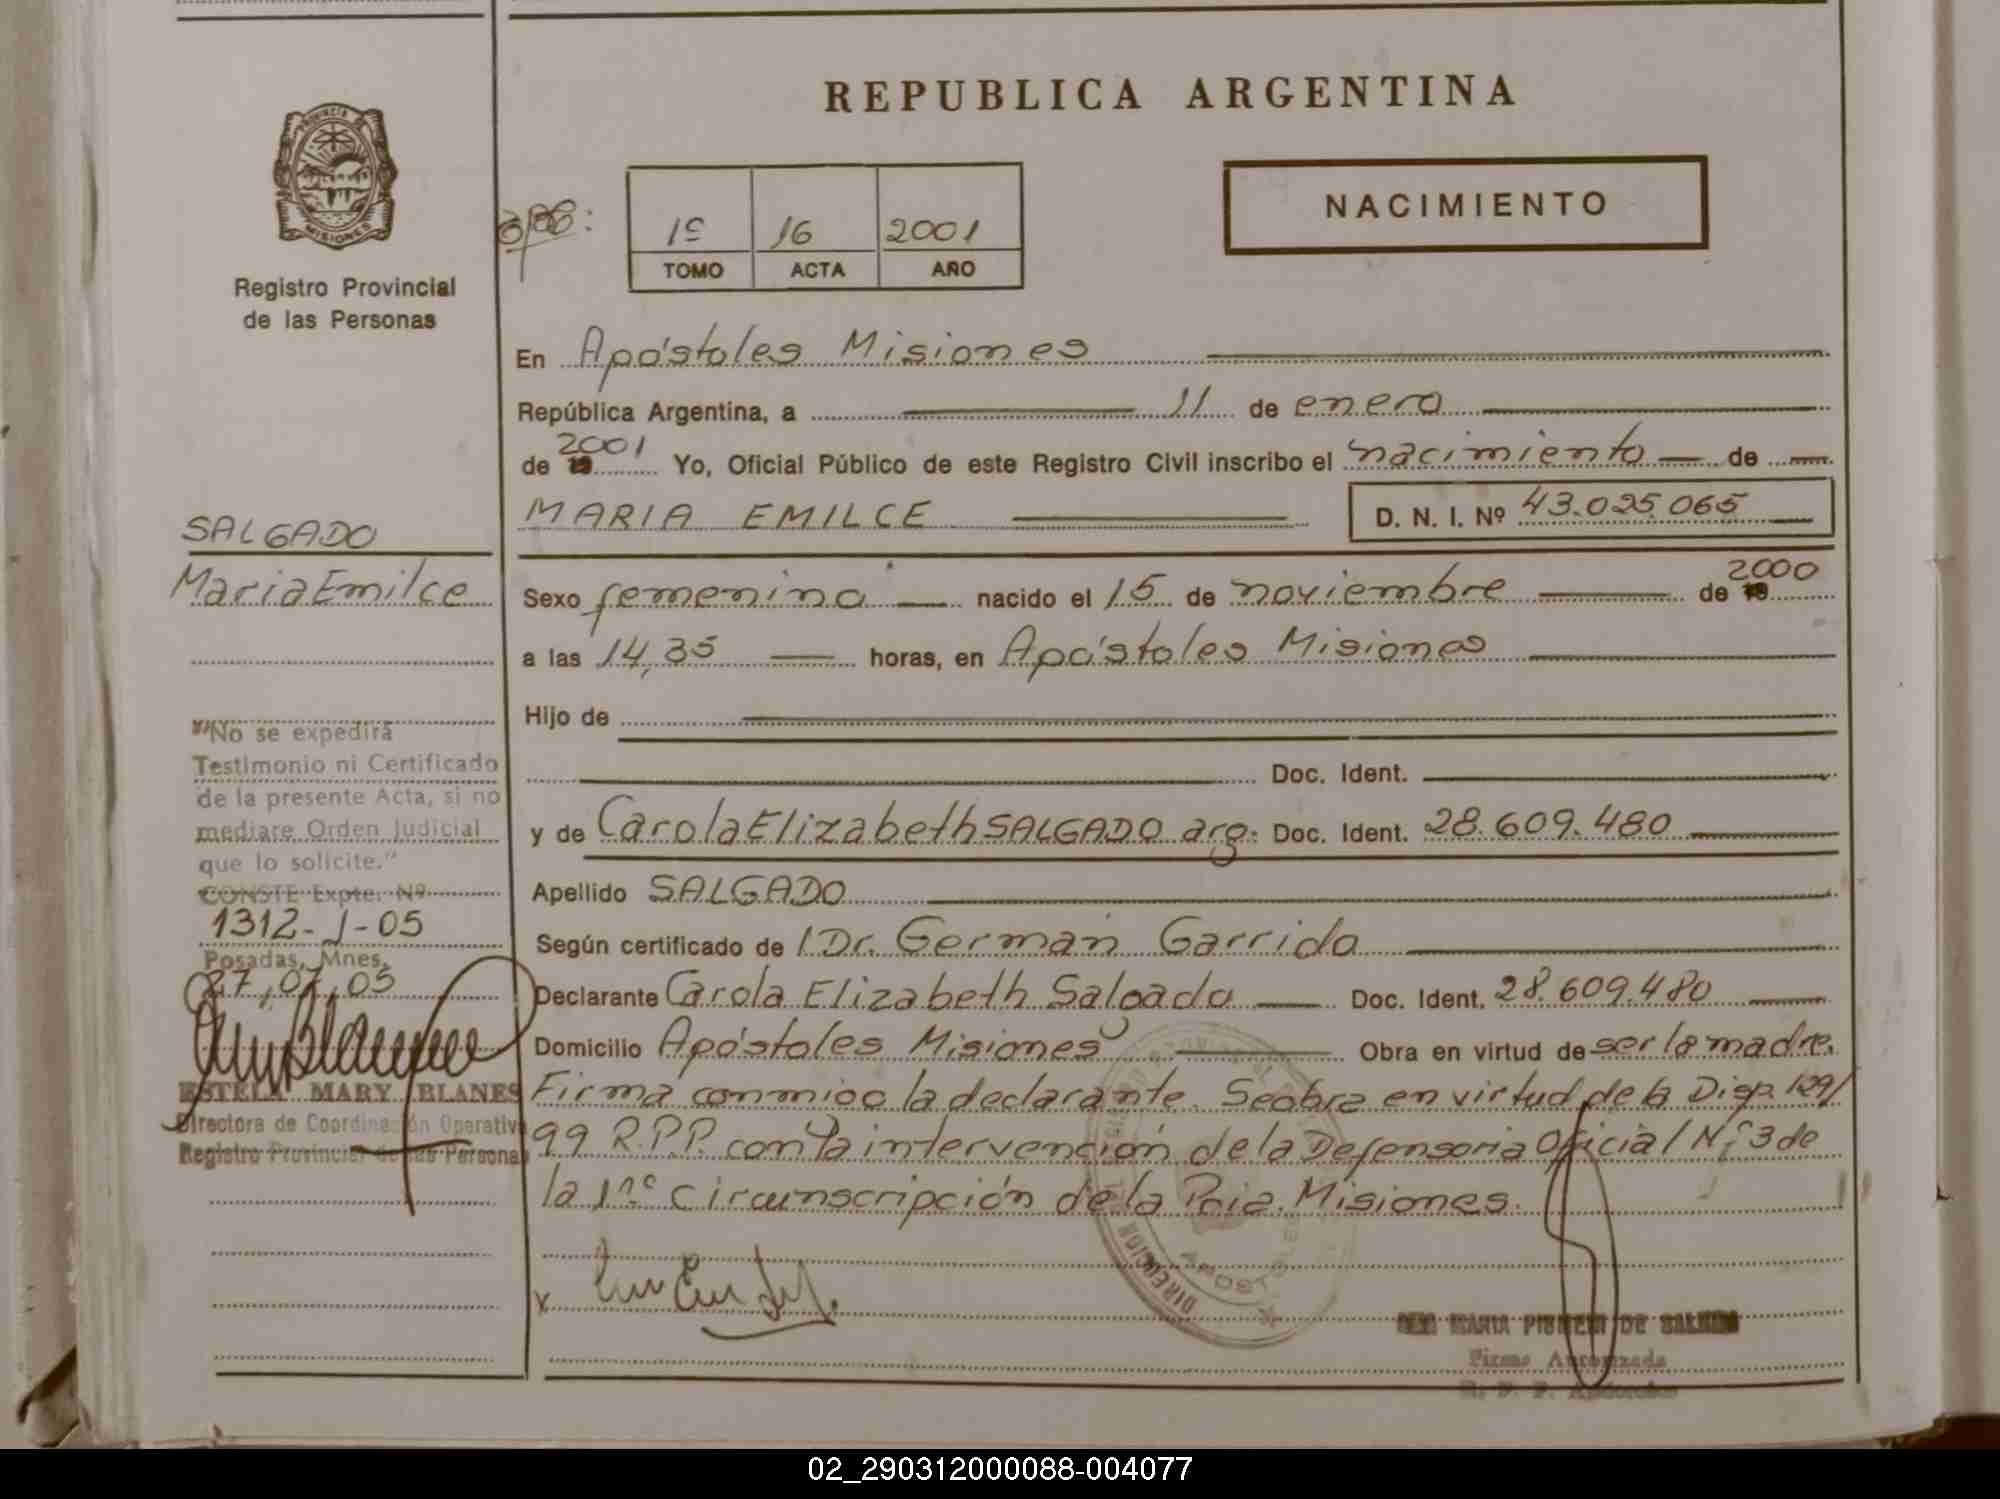 REPUBLICA ARGENTINA
PROVINCIA DE
MISIONES
Registro Provincial
de las Personas
1º 16 2001
TOMO ACTA AÑO
NACIMIENTO
En Apóstoles Misiones
República Argentina, a 11 de enero
de 2001 Yo, Oficial Público de este Registro Civil inscribo el nacimiento de
MARIA EMILCE D. N. I. Nº 43.025.065
SALGADO
Maria Emilce
Sexo femenino nacido el 15 de noviembre de 2000
a las 14,35 horas, en Apóstoles Misiones
Hijo de
Doc. Ident.
y de Carola Elizabeth SALGADO arg. Doc. Ident. 28.609.480
Apellido SALGADO
Según certificado de l Dr. Germán Garrido
Declarante Carola Elizabeth Salgado Doc. Ident. 28.609.480
Domicilio Apóstoles Misiones Obra en virtud de ser la madre.
Firma conmigo la declarante. Seobra en virtud de la Disp. 129/
99 R.P.P. con la intervención de la Defensoria Oficial Nº 3 de
la 1rª Circunscripción de la Pcia. Misiones.
"No se expedirá
Testimonio ni Certificado
de la presente Acta, si no
mediare Orden Judicial
que lo solicite."
CONSTE Expte. Nº
1312-J-05
Posadas, Mnes,
27,07,05
ESTELA MARY BLANES
Directora de Coordinación Operativa
Registro Provincial de las Personas
DIRECCION
APOSTOLES
MARIA DE
Firma Autorizada
R. P. P. Apóstoles
02_290312000088-004077